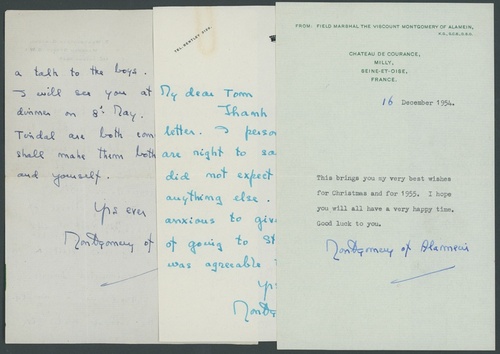 a talk to the boys.
I will see you at
dinner on 8th May.
Tindal are both com
shall make them both
and yourself.
Yrs ever
Montgomery of
TEL. BENTLEY 3126.
My dear Tom
Thank
letter. I person
are right to sa
did not expect
anything else.
anxious to give
of going to St
was agreeable
Yrs
Montgo
FROM: FIELD MARSHAL THE VISCOUNT MONTGOMERY OF ALAMEIN,
K.G., G.C.B., D.S.O.
CHATEAU DE COURANCE,
MILLY,
SEINE-ET-OISE,
FRANCE.
16 December 1954.
This brings you my very best wishes
for Christmas and for 1955. I hope
you will all have a very happy time.
Good luck to you.
Montgomery of Alamein